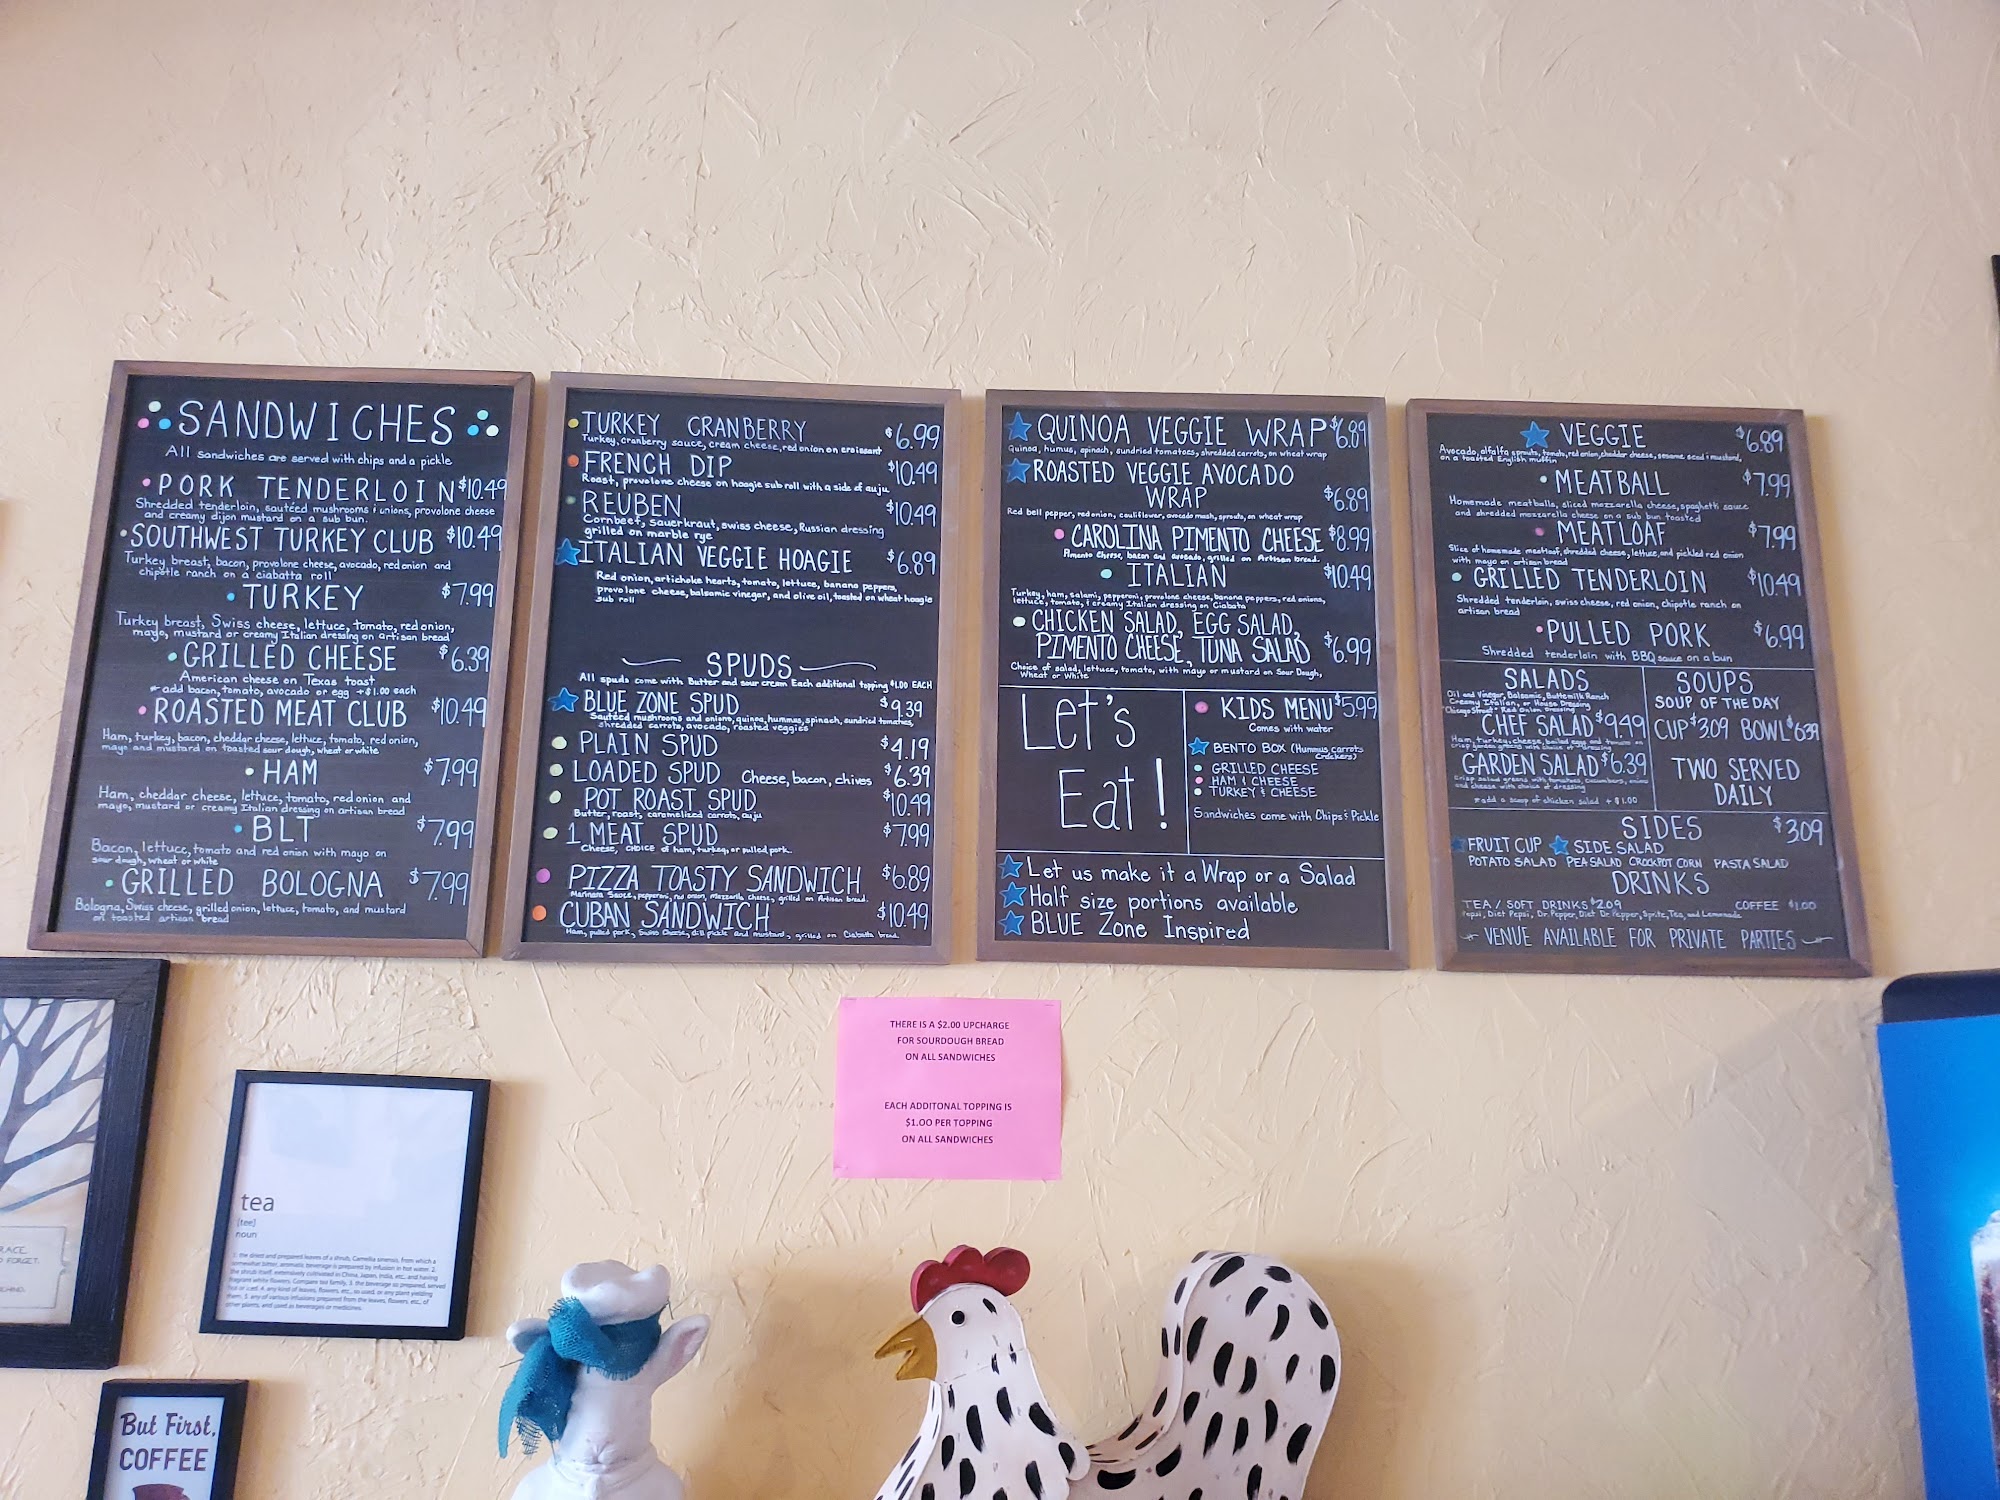 SANDWICHES
All sandwiches are served with chips and a pickle
PORK TENDERLOIN $10.49
Shredded tenderloin, sautéed mushrooms & onions, provolone cheese
and creamy dijon mustard on a sub bun.
SOUTHWEST TURKEY CLUB $10.49
Turkey breast, bacon, provolone cheese, avocado, red onion and
chipotle ranch on a ciabatta roll
TURKEY $7.99
Turkey breast, Swiss cheese, lettuce, tomato, red onion,
mayo, mustard or creamy Italian dressing on artisan bread
GRILLED CHEESE $6.39
American cheese on Texas toast
* add bacon, tomato, avocado or egg +$1.00 each
ROASTED MEAT CLUB $10.49
Ham, turkey, bacon, cheddar cheese, lettuce, tomato, red onion,
mayo and mustard on toasted sour dough, wheat or white
HAM $7.99
Ham, cheddar cheese, lettuce, tomato, red onion and
mayo, mustard or creamy Italian dressing on artisan bread
BLT $7.99
Bacon, lettuce, tomato and red onion with mayo on
sour dough, wheat or white
GRILLED BOLOGNA $7.99
Bologna, Swiss cheese, grilled onion, lettuce, tomato, and mustard
on toasted artisan bread
TURKEY CRANBERRY $6.99
Turkey, cranberry sauce, cream cheese, red onion on croissant
FRENCH DIP $10.49
Roast, provolone cheese on hoagie sub roll with a side of auju
REUBEN $10.49
Cornbeef, sauerkraut, swiss cheese, Russian dressing
grilled on marble rye
ITALIAN VEGGIE HOAGIE $6.89
Red onion, artichoke hearts, tomato, lettuce, banana peppers,
provolone cheese, balsamic vinegar, and olive oil, toasted on wheat hoagie
sub roll
SPUDS
All spuds come with Butter and sour cream Each additional topping $1.00 EACH
BLUE ZONE SPUD $9.39
Sautéed mushrooms and onions, quinoa, hummus, spinach, sundried tomatoes,
shredded carrots, avocado, roasted veggies
PLAIN SPUD $4.19
LOADED SPUD Cheese, bacon, chives $6.39
POT ROAST SPUD $10.49
Butter, roast, caramelized carrots, auju
1 MEAT SPUD $7.99
Cheese, choice of ham, turkey, or pulled pork.
PIZZA TOASTY SANDWICH $6.89
Marinara Sauce, pepperoni, red onion, mozzarella cheese, grilled on Artisan bread.
CUBAN SANDWICH $10.49
Ham, pulled pork, Swiss Cheese, dill pickle and mustard, grilled on Ciabatta bread.
QUINOA VEGGIE WRAP $6.89
Quinoa, humus, spinach, sundried tomatoes, shredded carrots, on wheat wrap
ROASTED VEGGIE AVOCADO
WRAP $6.89
Red bell pepper, red onion, cauliflower, avocado mash, sprouts, on wheat wrap
CAROLINA PIMENTO CHEESE $8.99
Pimento Cheese, bacon and avocado, grilled on Artisan bread.
ITALIAN $10.49
Turkey, ham, salami, pepperoni, provolone cheese, banana peppers, red onions,
lettuce, tomato, & creamy Italian dressing on Ciabata
CHICKEN SALAD, EGG SALAD,
PIMENTO CHEESE, TUNA SALAD $6.99
Choice of salad, lettuce, tomato, with mayo or mustard on Sour Dough,
Wheat or White
Let's
Eat!
KIDS MENU $5.99
Comes with water
BENTO BOX (Hummus, carrots
Crackers)
GRILLED CHEESE
HAM & CHEESE
TURKEY & CHEESE
Sandwiches come with Chips & Pickle
Let us make it a Wrap or a Salad
Half size portions available
BLUE Zone Inspired
VEGGIE $6.89
Avocado, alfalfa sprouts, tomato, red onion, cheddar cheese, sesame seed & mustard,
on a toasted English muffin
MEATBALL $7.99
Homemade meatballs, sliced mozzarella cheese, spaghetti sauce
and shredded mozzarella cheese on a sub bun toasted
MEATLOAF $7.99
Slice of homemade meatloaf, shredded cheese, lettuce, and pickled red onion
with mayo on artisan bread
GRILLED TENDERLOIN $10.49
Shredded tenderloin, swiss cheese, red onion, chipotle ranch on
artisan bread
PULLED PORK $6.99
Shredded tenderloin with BBQ sauce on a bun
SALADS
Oil and Vinegar, Balsamic, Buttermilk Ranch
Creamy Italian, or House Dressing
"Chicago Street" Red Onion Dressing
CHEF SALAD $9.49
Ham, turkey, cheese, boiled egg and tomato on
crisp garden greens with choice of dressing
GARDEN SALAD $6.39
Crisp salad greens with tomatoes, cucumbers, onions
and cheese with choice of dressing
* add a scoop of chicken salad + $1.00
SOUPS
SOUP OF THE DAY
CUP $3.09 BOWL $6.39
TWO SERVED
DAILY
SIDES $3.09
FRUIT CUP SIDE SALAD
POTATO SALAD PEA SALAD CROCKPOT CORN PASTA SALAD
DRINKS
TEA / SOFT DRINKS $2.09 COFFEE $1.00
Pepsi, Diet Pepsi, Dr. Pepper, Diet Dr. Pepper, Sprite, Tea, and Lemonade
VENUE AVAILABLE FOR PRIVATE PARTIES
THERE IS A $2.00 UPCHARGE
FOR SOURDOUGH BREAD
ON ALL SANDWICHES
EACH ADDITONAL TOPPING IS
$1.00 PER TOPPING
ON ALL SANDWICHES
RACE
FORGET
tea
[tee]
noun
1. the dried and prepared leaves of a shrub, Camellia sinensis, from which a
somewhat bitter, aromatic beverage is prepared by infusion in hot water. 2.
the shrub itself, extensively cultivated in China, Japan, India, etc., and having
fragrant white flowers. Compare tea family. 3. the beverage so prepared, served
hot or iced. 4. any kind of leaves, flowers, etc., so used, or any plant yielding
them. 5. any of various infusions prepared from the leaves, flowers, etc., of
other plants, and used as beverages or medicines.
But First,
COFFEE